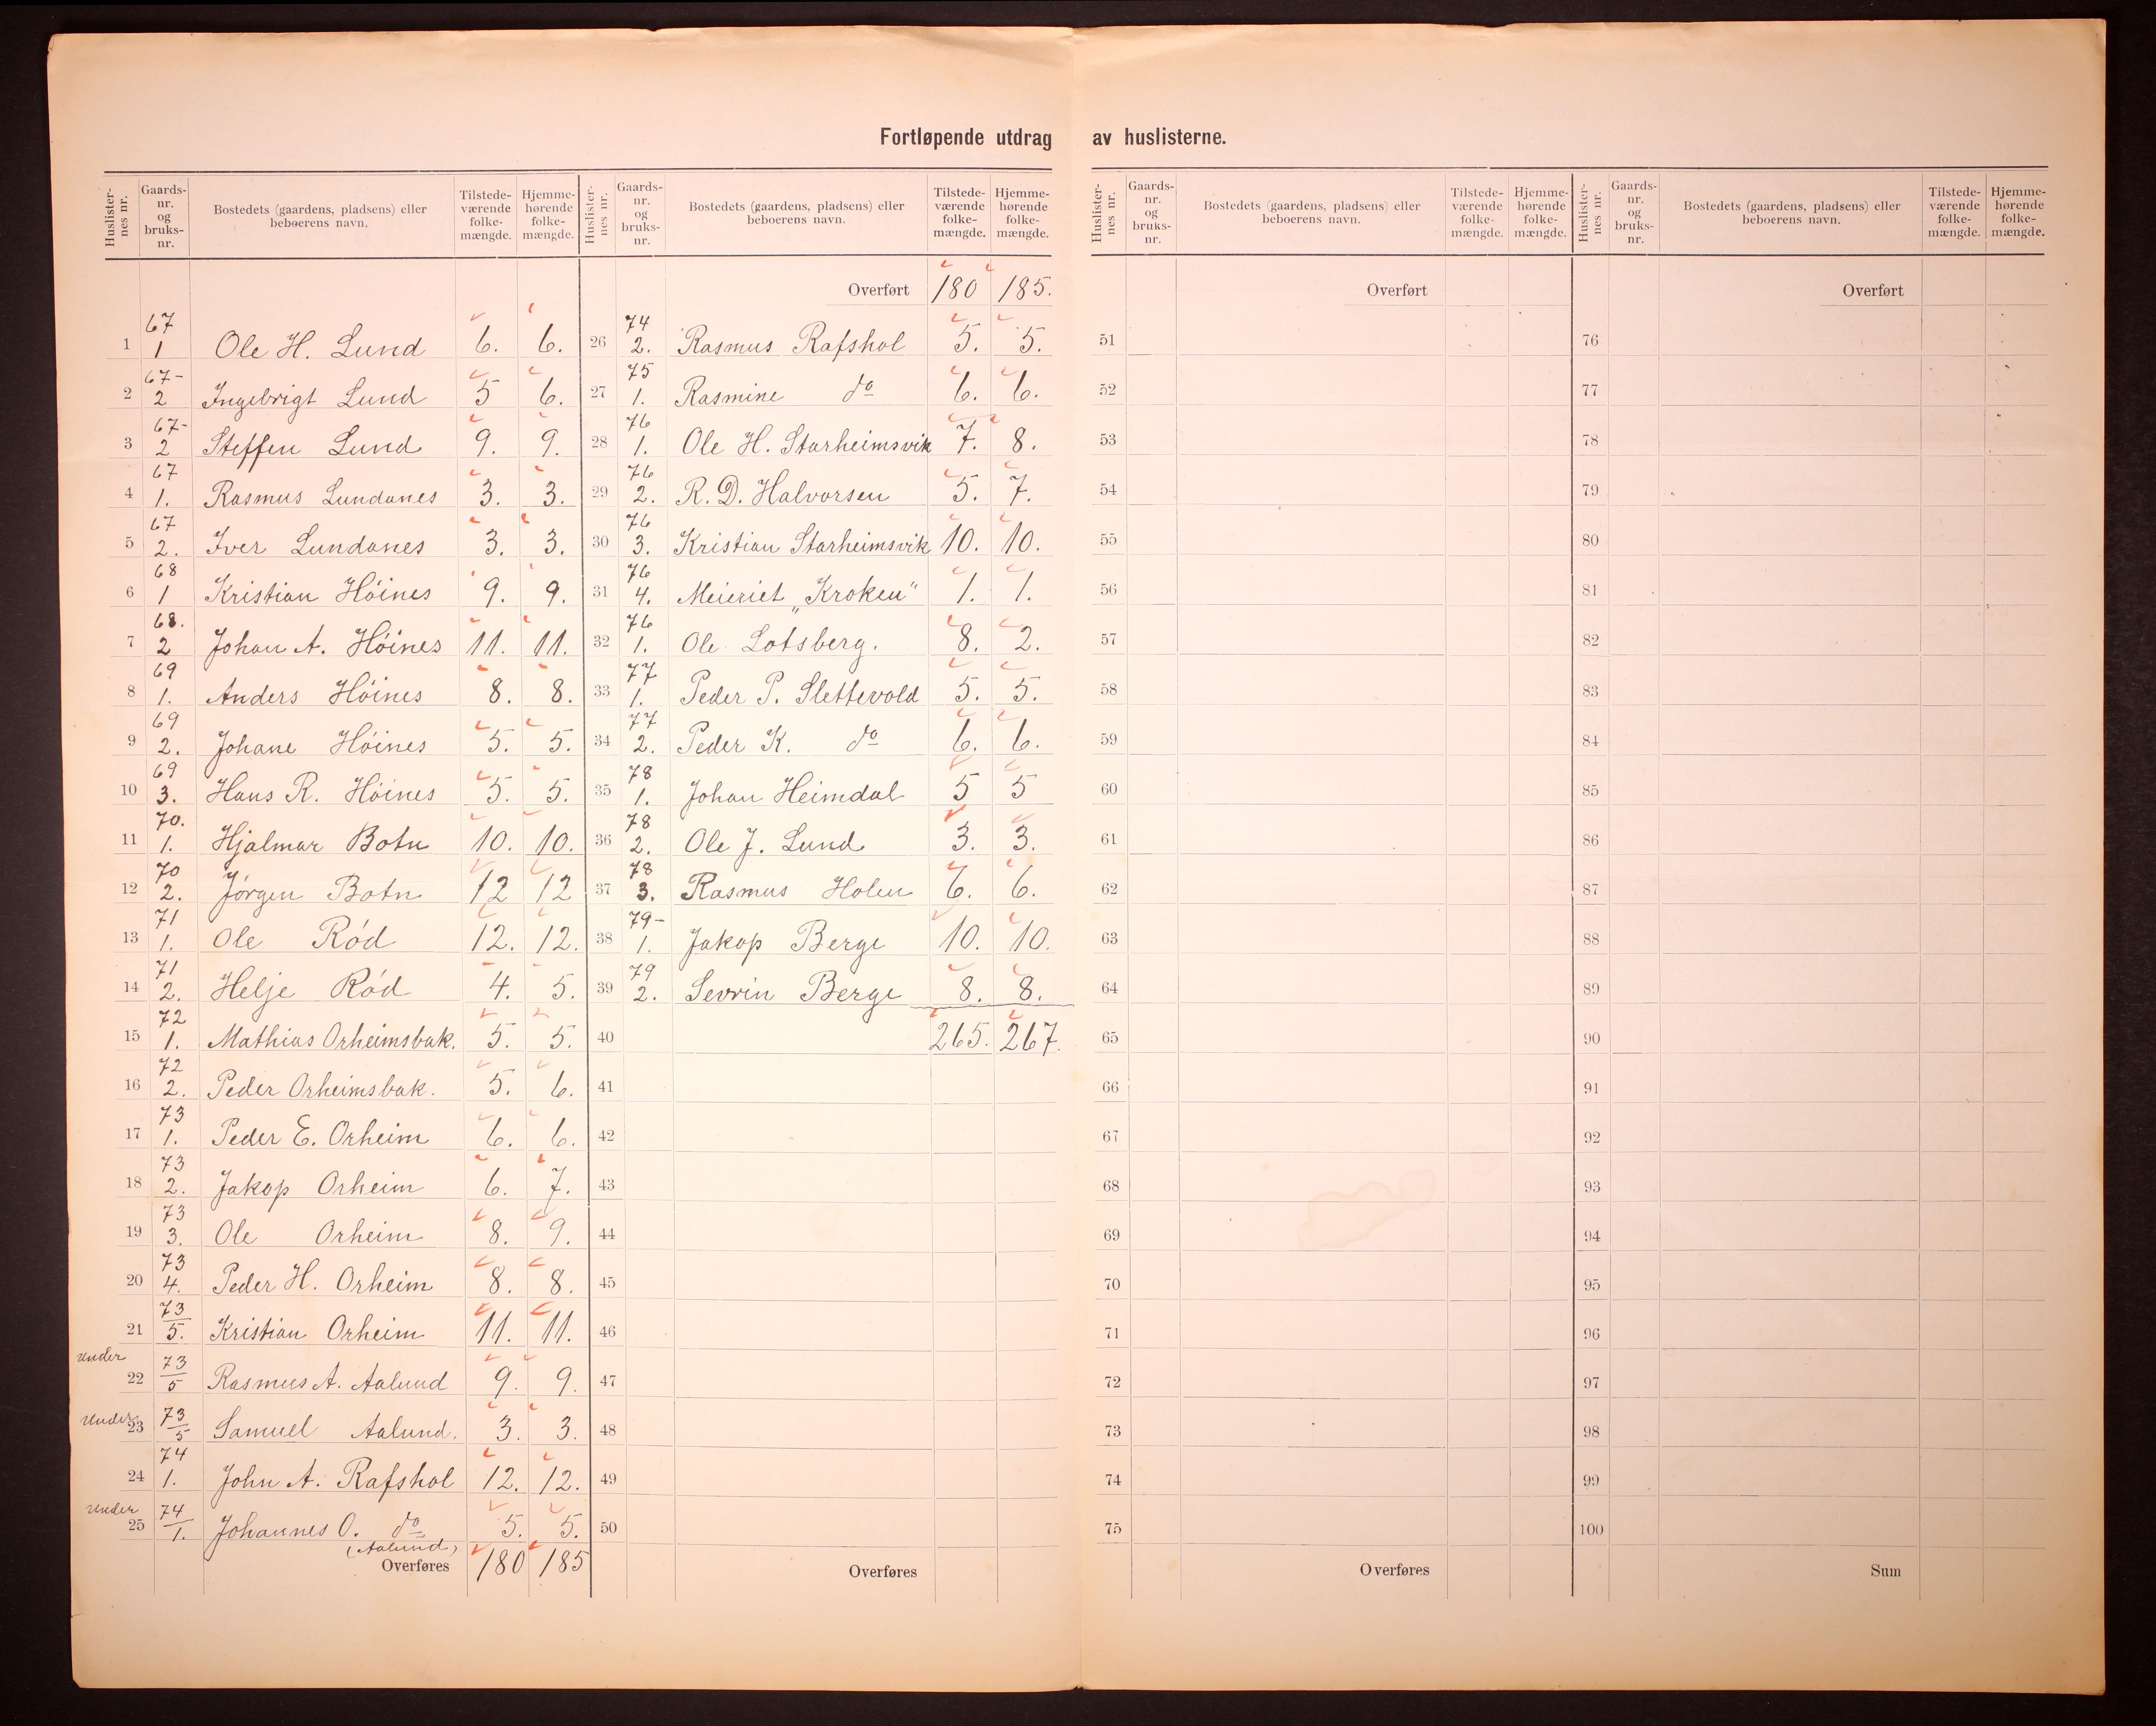 Fortløpende utdrag av huslisterne.
Huslister-nes nr. | Gaards-nr. og bruks-nr. | Bostedets (gaardens, pladsens) eller beboerens navn. | Tilstede-værende folke-mængde. | Hjemme-hørende folke-mængde.
1 67 1 Ole H. Lund 6. 6.
2 67- 2 Ingebrigt Lund 5 6.
3 67- 2 Steffen Lund 9. 9.
4 67 1. Rasmus Lundanes 3. 3.
5 67 2. Iver Lundanes 3. 3.
6 68 1 Kristian Höines 9. 9.
7 68. 2 Johan A. Höines 11. 11.
8 69 1. Anders Höines 8. 8.
9 69 2. Johane Höines 5. 5.
10 69 3. Hans R. Höines 5. 5.
11 70. 1. Hjalmar Botn 10. 10.
12 70 2. Jørgen Botn 12 12
13 71 1. Ole Ród 12. 12.
14 71 2. Helje Ród 4. 5.
15 72 1. Mathias Orheimsbak. 5. 5.
16 72 2. Peder Orheimsbak. 5. 6.
17 73 1. Peder E. Orheim 6. 6.
18 73 2. Jakop Orheim 6. 7.
19 73 3. Ole Orheim 8. 9.
20 73 4. Peder H. Orheim 8. 8.
21 73 5. Kristian Orheim 11. 11.
under
22 73 5 Rasmus A. Aalund 9. 9.
under
23 73 5 Samuel Aalund. 3. 3.
24 74 1. John A. Rafshol 12. 12.
under
25 74 1. Johannes O. do 5. 5.
(Aalund)
Overføres 180 185
Huslister-nes nr. | Gaards-nr. og bruks-nr. | Bostedets (gaardens, pladsens) eller beboerens navn. | Tilstede-værende folke-mængde. | Hjemme-hørende folke-mængde.
Overført 180 185.
26 74 2. Rasmus Rafshol 5. 5.
27 75 1. Rasmine do 6. 6.
28 76 1. Ole H. Starheimsvik 7. 8.
29 76 2. R. D. Halvorsen 5. 7.
30 76 3. Kristian Starheimsvik 10. 10.
31 76 4. Meieriet „Kroken" 1. 1.
32 76 1. Ole Lotsberg. 8. 2.
33 77 1. Peder P. Slettevold 5. 5.
34 77 2. Peder K. do 6. 6.
35 78 1. Johan Heimdal 5 5
36 78 2. Ole J. Lund 3. 3.
37 78 3. Rasmus Holen 6. 6.
38 79- 1. Jakop Berge 10. 10.
39 79 2. Sevrin Berge 8. 8.
40 265. 267.
41
42
43
44
45
46
47
48
49
50
Overføres
Huslister-nes nr. | Gaards-nr. og bruks-nr. | Bostedets (gaardens, pladsens) eller beboerens navn. | Tilstede-værende folke-mængde. | Hjemme-hørende folke-mængde.
Overført
51
52
53
54
55
56
57
58
59
60
61
62
63
64
65
66
67
68
69
70
71
72
73
74
75
Overføres
Huslister-nes nr. | Gaards-nr. og bruks-nr. | Bostedets (gaardens, pladsens) eller beboerens navn. | Tilstede-værende folke-mængde. | Hjemme-hørende folke-mængde.
Overført
76
77
78
79
80
81
82
83
84
85
86
87
88
89
90
91
92
93
94
95
96
97
98
99
100
Sum